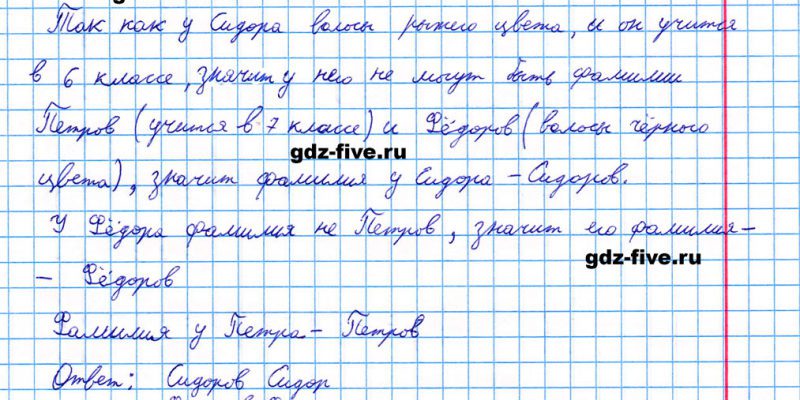 Так как у Сидора волосы рыжего цвета, и он учится
в 6 классе, значит у него не могут быть фамилии
Петров (учится в 7 классе) и Фёдоров (волосы чёрного
gdz-five.ru
цвета), значит фамилия у Сидора - Сидоров.
У Фёдора фамилия не Петров, значит его фамилия -
gdz-five.ru
- Фёдоров
Фамилия у Петра - Петров
Ответ: Сидоров Сидор